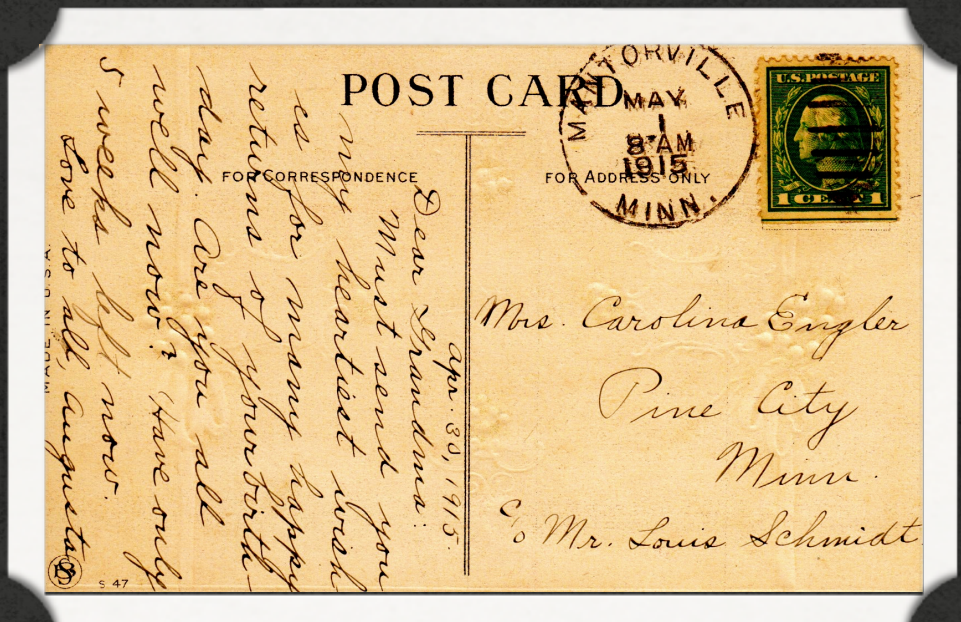 POST CARD
FOR CORRESPONDENCE
FOR ADDRESS ONLY
MANTORVILLE
MAY
1
8 AM
1915
MINN.
U.S. POSTAGE
1 CENT 1
Apr. 30, 1915.
Dear Grandma:
Must send you
my heartiest wish
es for many happy
returns of your birth-
day. Are you all
well now? Have only
5 weeks left now.
Love to all, Augusta
Mrs. Carolina Engler
Pine City
Minn.
c/o Mr. Louis Schmidt
MADE IN U.S.A.
S 47